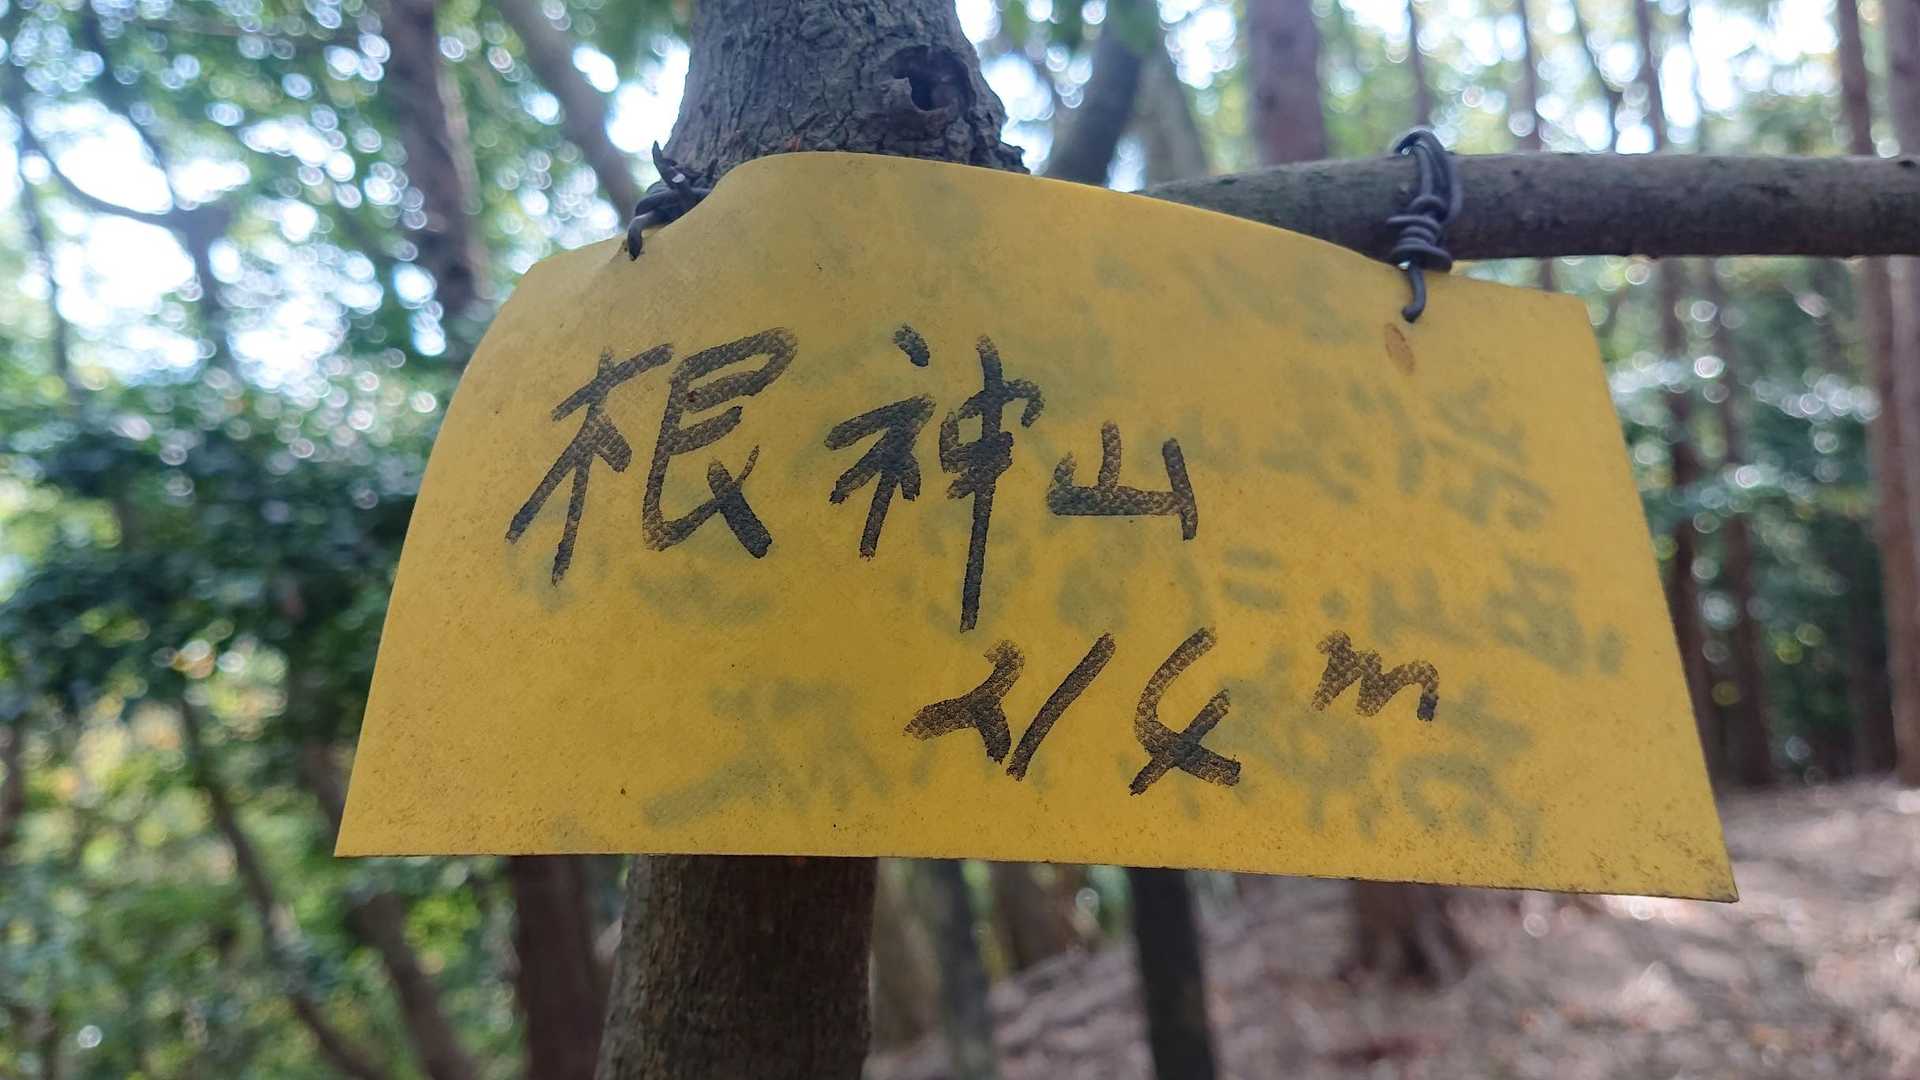 根神山
214m